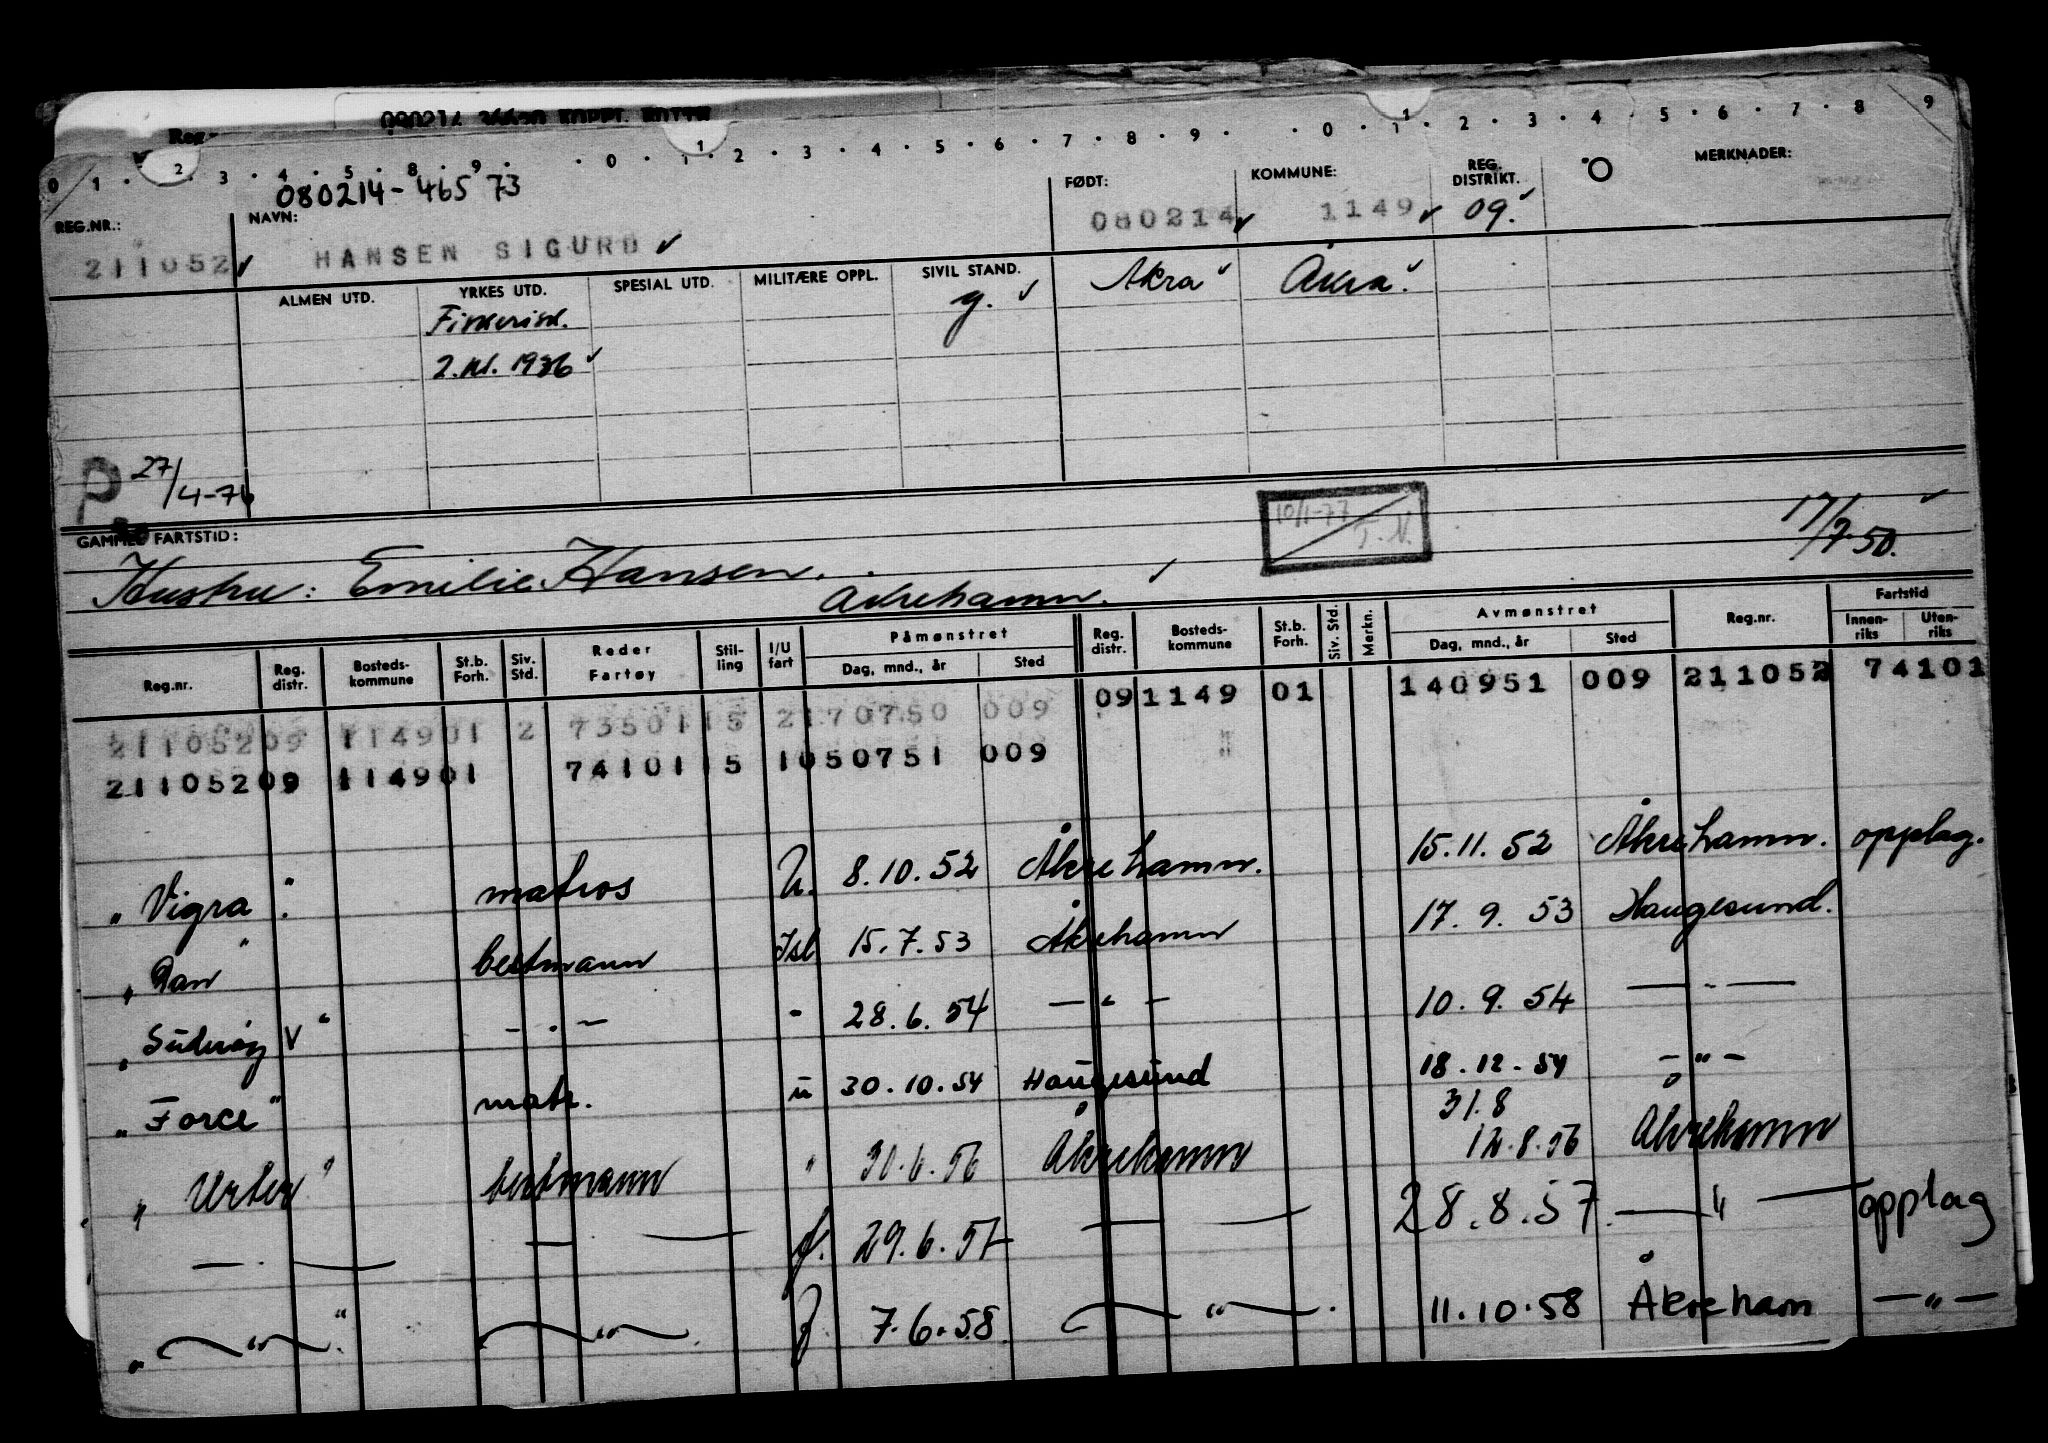 Reg.
0 1 2 3 4 5 8 9 0 1 2 3 4 5 6 7 8 9 0 1 2 3 4 5 6 7 8 9
080214-46573
REG.NR.: NAVN: FØDT: KOMMUNE: REG. DISTRIKT. MERKNADER:
211052 ✓ HANSEN SIGURD ✓ 080214 ✓ 1149 ✓ 09. ✓
ALMEN UTD. YRKES UTD. SPESIAL UTD. MILITÆRE OPPL. SIVIL STAND. Akra ✓ Åkra ✓
Fiskerisk. g. ✓
2.kl. 1936 ✓
P 27/4-76
GAMMEL FARTSTID: 10/1-77 T.N. 17/7.50. ✓
Hustru: Emilie Hansen. Åkrehamn. ✓
Reg.nr. Reg. distr. Bosteds- kommune St.b. Forh. Siv. Std. Reder Fartøy Stil- ling I/U fart Påmønstret Dag, mnd., år Sted Reg. distr. Bosteds- kommune St.b. Forh. Siv. Std. Merkn. Avmønstret Dag, mnd., år Sted Reg.nr. Fartstid Innen- riks Uten- riks
21105209 114901 2 7350115 2170750 009 091149 01 140951 009 211052 74101
21105209 114901 7410115 1050751 009 "
"Vigra" matros U. 8.10.52 Åkrehamn. 15.11.52 Åkrehamn. opplag.
"Ran" bestmann Isl 15.7.53 Åkrehamn 17.9.53 Haugesund.
"Sulvåg V" - " - - 28.6.54 - " - 10.9.54 - " -
"Force" matr. u 30.10.54 Haugesund 18.12.54 - " -
31.8
"Urter" bestmann " 30.6.56 Åkrehamn 12.8.56 Åkrehamn
- " - - - f. 29.6.57 - - 28.8.57. - " - opplag
" - " - " - " - f. 7.6.58. - " - 11.10.58 Åkreham - " -